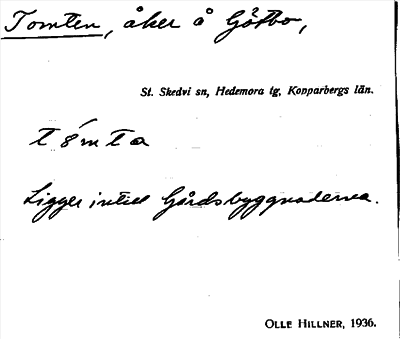 Tomten, åker å Götbo,
St. Skedvi sn, Hedemora tg, Kopparbergs län.
Ligger intill Gårdsbyggnaderna.
OLLE HILLNER, 1936.